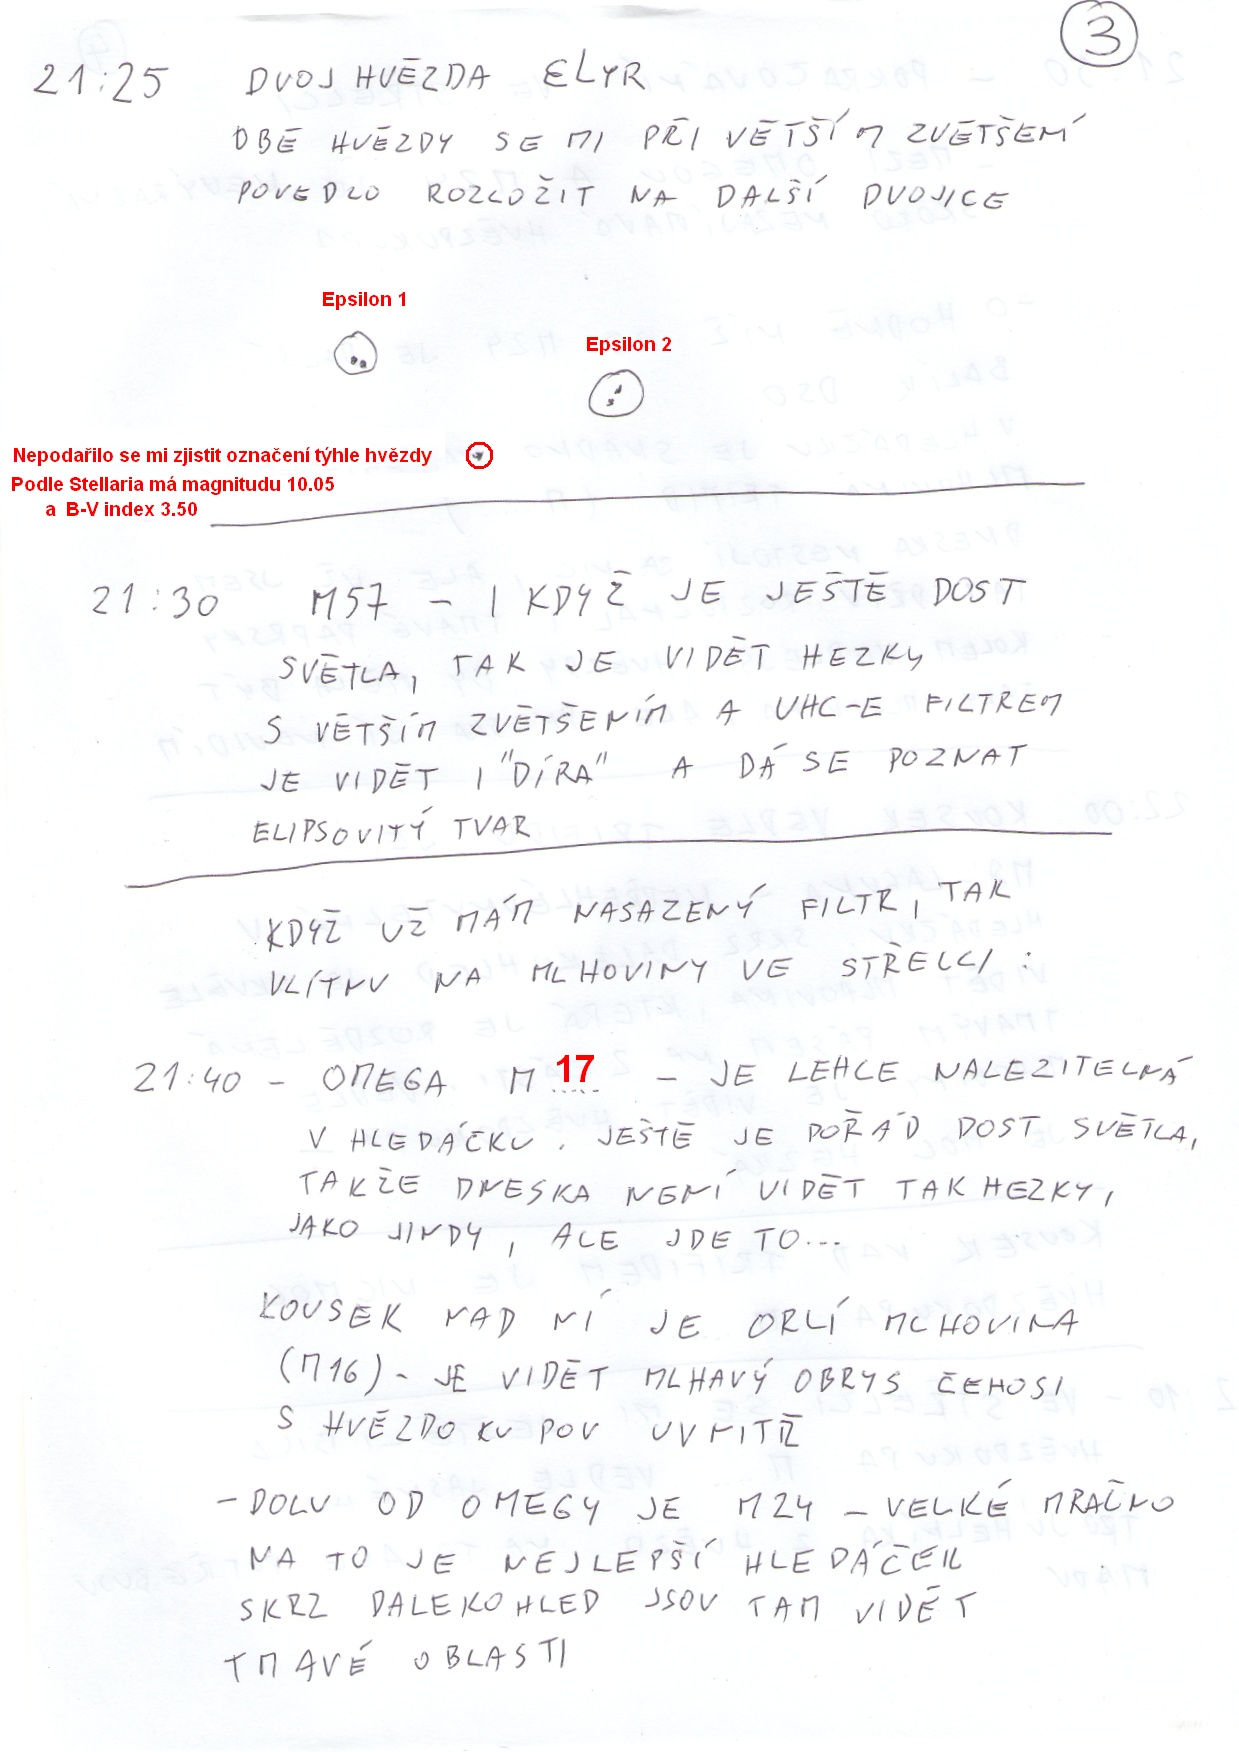 3
21:25 DVOJHVĚZDA ELYR
OBĚ HVĚZDY SE MI PŘI VĚTŠÍM ZVĚTŠENÍ
POVEDLO ROZLOŽIT NA DALŠÍ DVOJICE
Epsilon 1
Epsilon 2
Nepodařilo se mi zjistit označení týhle hvězdy
Podle Stellaria má magnitudu 10.05
a B-V index 3.50
21:30 M57 - I KDYŽ JE JEŠTĚ DOST
SVĚTLA, TAK JE VIDĚT HEZKY
S VĚTŠÍM ZVĚTŠENÍM A UHC-E FILTREM
JE VIDĚT I "DÍRA" A DÁ SE POZNAT
ELIPSOVITÝ TVAR
KDYŽ UŽ MÁM NASAZENÝ FILTR, TAK
VLÍTNU NA MLHOVINY VE STŘELCI:
21:40 - OMEGA M 17 - JE LEHCE NALEZITELNÁ
V HLEDÁČKU. JEŠTĚ JE POŘÁD DOST SVĚTLA,
TAKŽE DNESKA NENÍ VIDĚT TAK HEZKY,
JAKO JINDY, ALE JDE TO...
KOUSEK NAD NÍ JE ORLÍ MLHOVINA
(M16) - JE VIDĚT MLHAVÝ OBRYS ČEHOSI
S HVĚZDOKUPOU UVNITŘ
- DOLU OD OMEGY JE M24 - VELKÉ MRAČNO
NA TO JE NEJLEPŠÍ HLEDÁČEK
SKRZ DALEKOHLED JSOU TAM VIDĚT
TMAVÉ OBLASTI